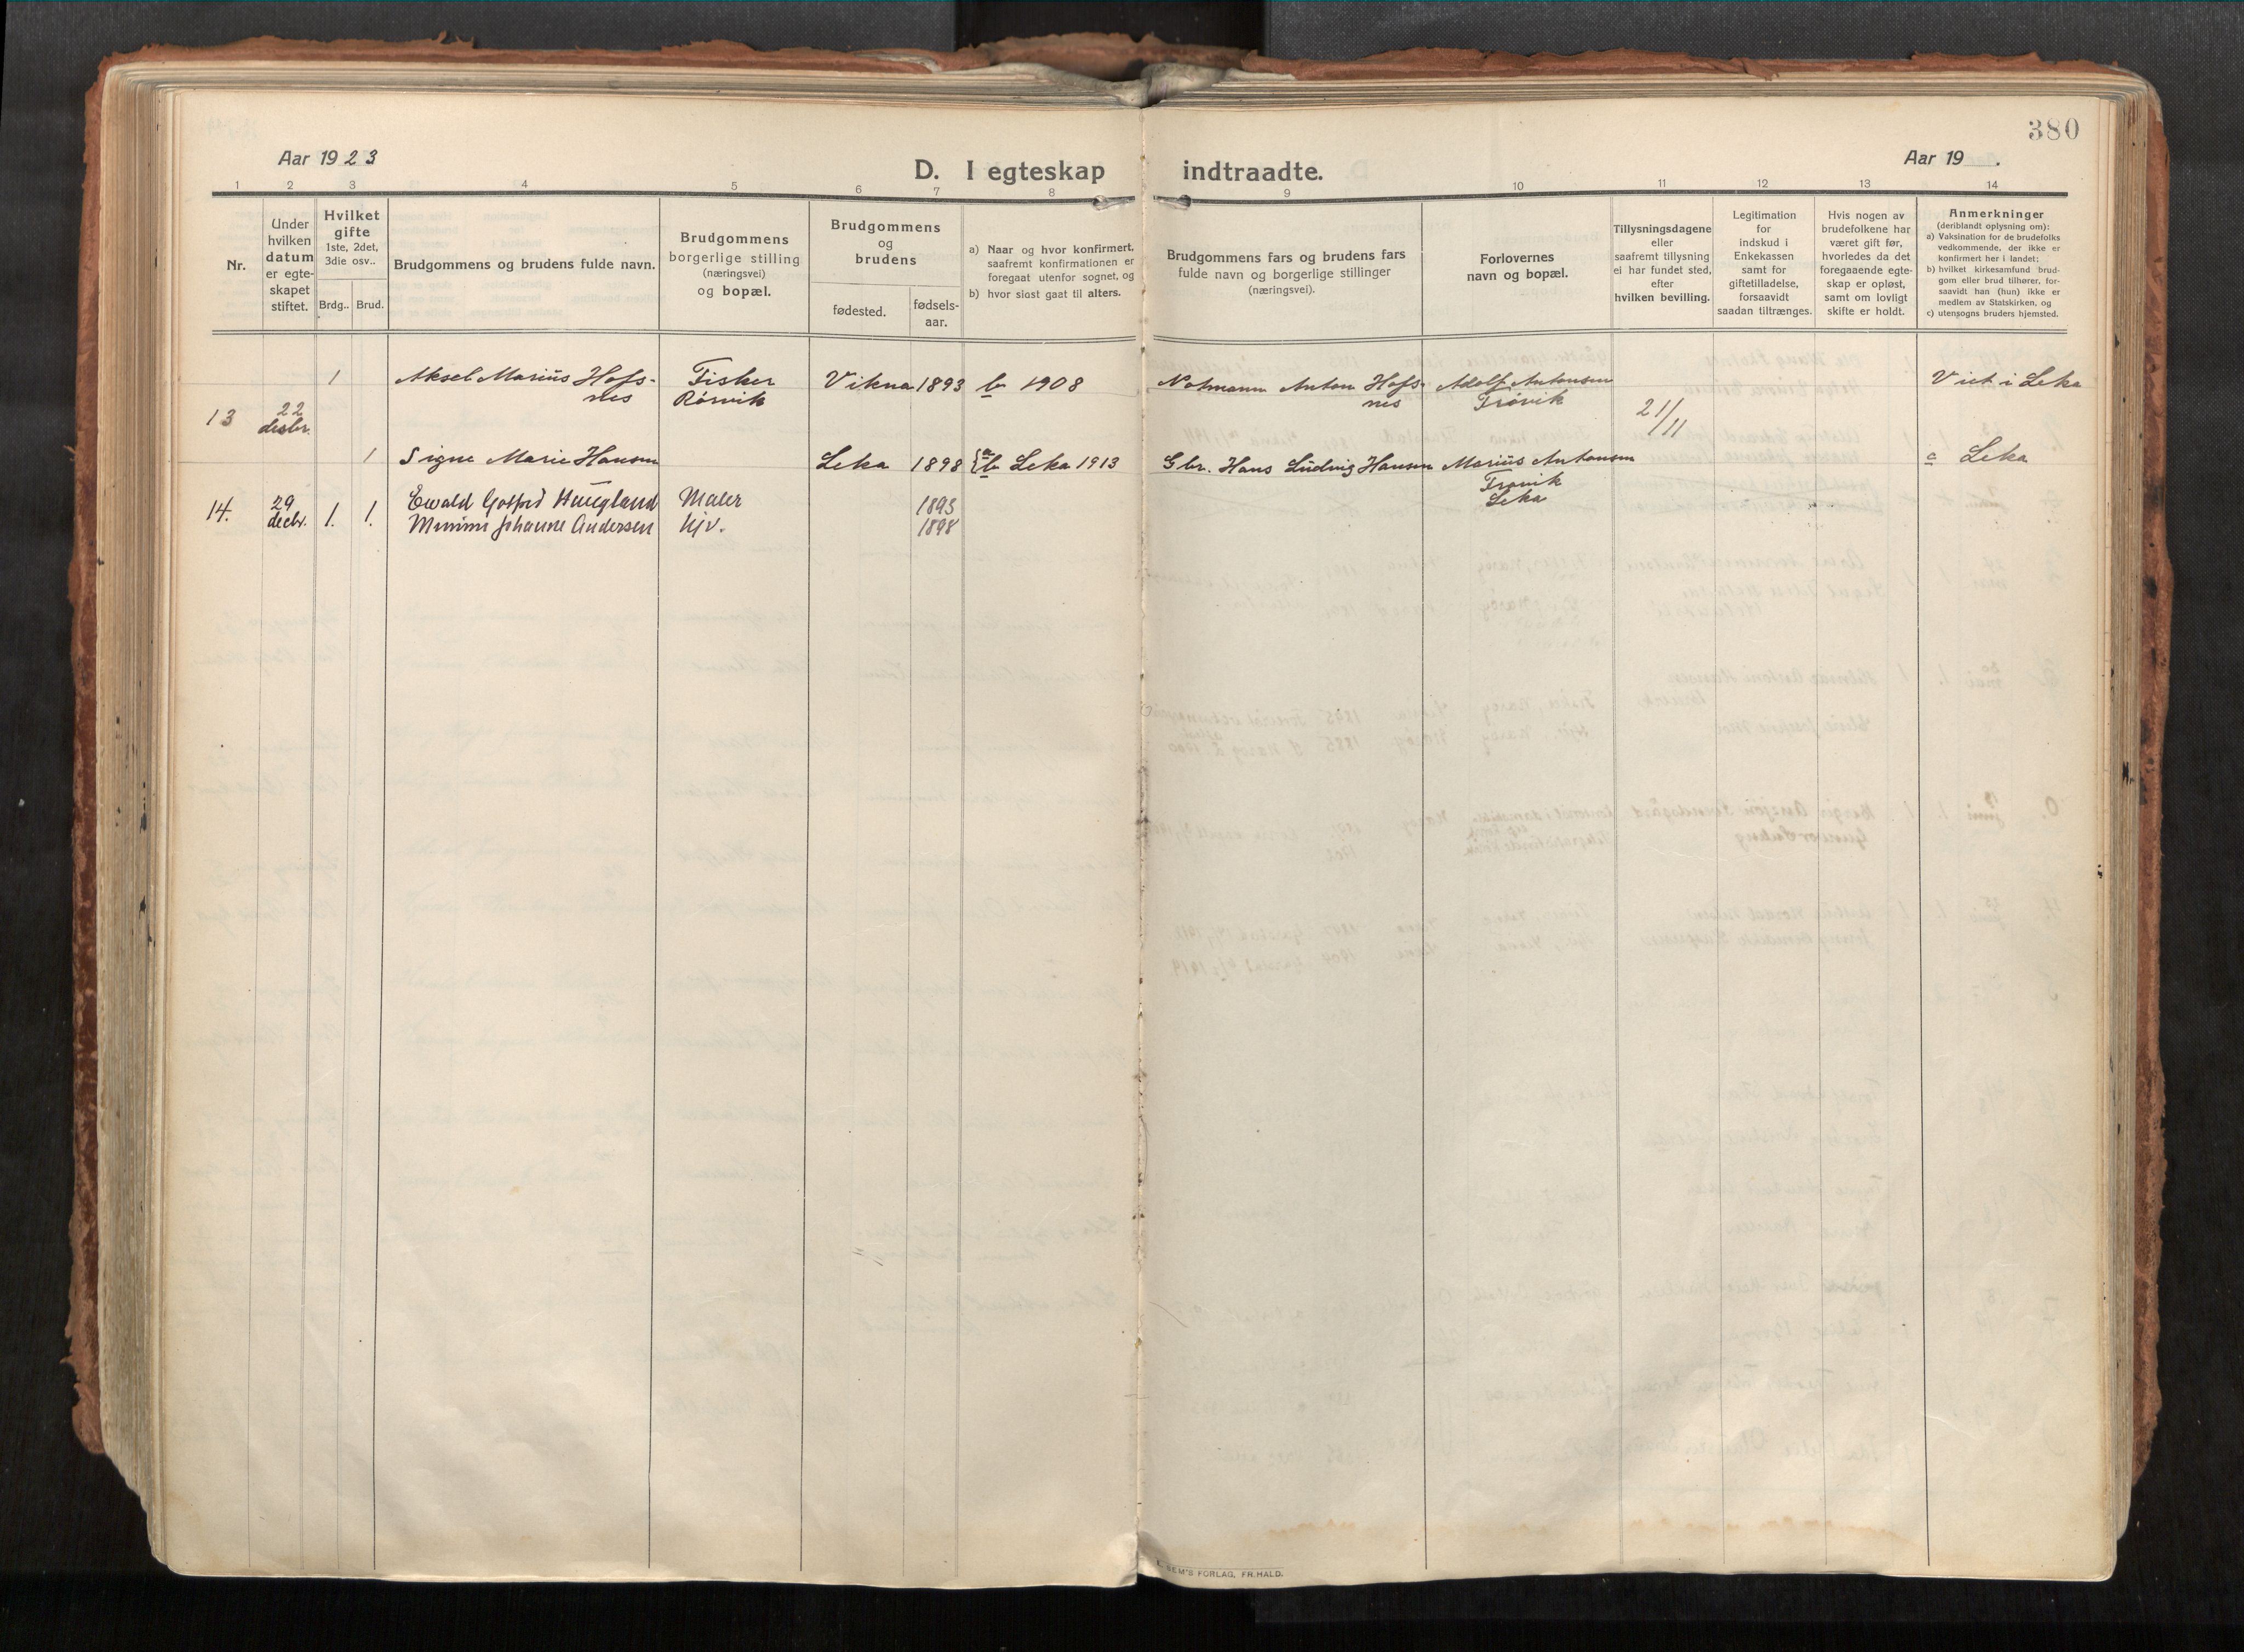 380
Aar 1923
D. I egteskap indtraadte.
Aar 19 .
1 2 3 4 5 6 7 8 9 10 11 12 13 14
Nr.
Under
hvilken
datum
er egte-
skapet
stiftet.
Hvilket
gifte
1ste, 2det,
3die osv..
Brdg.. Brud.
Brudgommens og brudens fulde navn.
Brudgommens
borgerlige stilling
(næringsvei)
og bopæl.
Brudgommens
og
brudens
fødested.
fødsels-
aar.
a) Naar og hvor konfirmert,
saafremt konfirmationen er
foregaat utenfor sognet, og
b) hvor sidst gaat til alters.
Brudgommens fars og brudens fars
fulde navn og borgerlige stillinger
(næringsvei).
Forlovernes
navn og bopæl.
Tillysningsdagene
eller
saafremt tillysning
ei har fundet sted,
efter
hvilken bevilling.
Legitimation
for
indskud i
Enkekassen
samt for
giftetilladelse,
forsaavidt
saadan tiltrænges.
Hvis nogen av
brudefolkene har
været gift før,
hvorledes da det
foregaaende egte-
skap er opløst,
samt om lovligt
skifte er holdt.
Anmerkninger
(deriblandt oplysning om):
a) Vaksination for de brudefolks
vedkommende, der ikke er
konfirmert her i landet;
b) hvilket kirkesamfund brud-
gom eller brud tilhører, for-
saavidt han (hun) ikke er
medlem av Statskirken, og
c) utensogns bruders hjemsted.
1 Aksel Marius Hofs- Fisker Vikna 1893 b 1908 Notmann Anton Hofs- Adolf Antonsen Viet i Leka
nes Rörvik nes Trövik
13 22 21/
desbr. 11
1 Signe Marie Hansen Leka 1898 a b Leka 1913 Gbr. Hans Ludvig Hansen Marius Antonsen c Leka
Trøvik
Leka
14. 29 1. 1. Ewald Gotfred Haugland Maler 1893
decbr. Minimi Johanne Andersen Hjv. 1898
SEM'S FORLAG, FR.HALD.